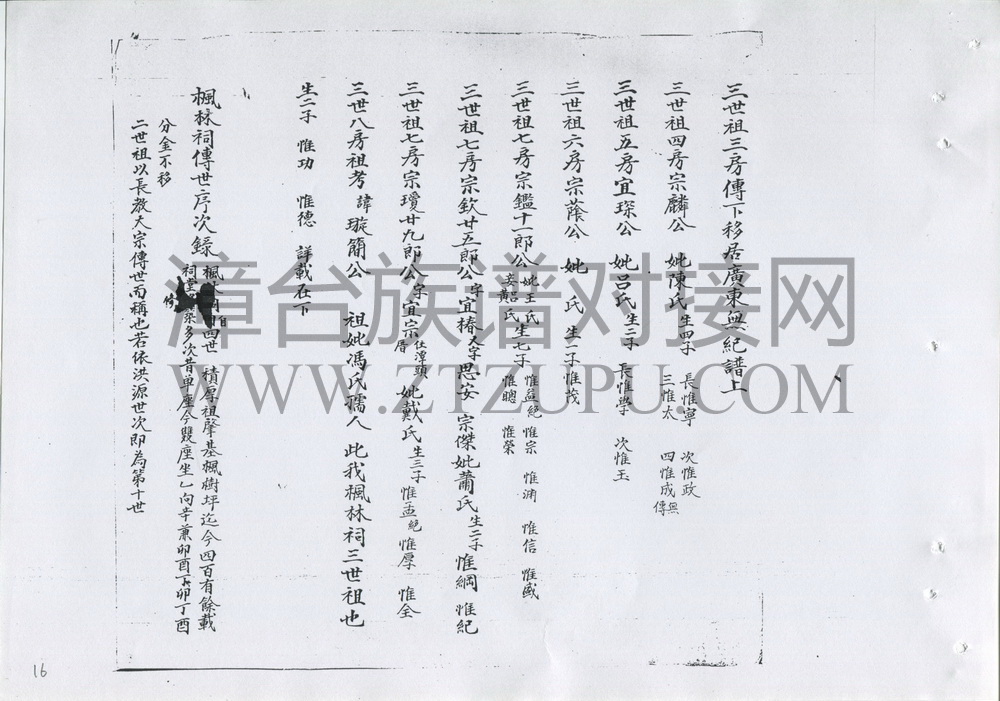 三世祖三房傳下移居廣東無紀譜上
三世祖四房宗麟公 妣陳氏 生四子 長惟寧 次惟政
三惟太 四惟成無傳
三世祖五房宜琛公 妣呂氏 生二子 長惟學 次惟玉
三世祖六房宗蔭公 妣 氏 生二子惟茂
三世祖七房宗鑑十一郎公 妣王氏 生七子 惟益絕 惟宗 惟浦 惟信 惟盛
妾呂黃氏 惟聰 惟榮
三世祖七房宗欽廿五郎公字宜椿又字思安 宗傑妣蕭氏 生二子 惟綱 惟紀
三世祖七房宗瓊廿九郎公字宜宗住潭頭厝 妣戴氏 生三子 惟直絕 惟厚 惟全
三世八房祖考諱璇簡公 祖妣馮氏孺人 此我楓林祠三世祖也
生二子 惟功 惟德 詳載在下
楓林祠傳世序次録
楓林祠自四世 積厚祖肇基楓樹坪迄今四百有餘載
祠堂築多次昔單座今雙座坐乙向辛兼卯酉丁卯丁酉
修
分金不移
二世祖以長教大宗傳世而稱也若依洪源世次即為第十世
16
漳台族谱对接网
WWW.ZTZUPU.COM